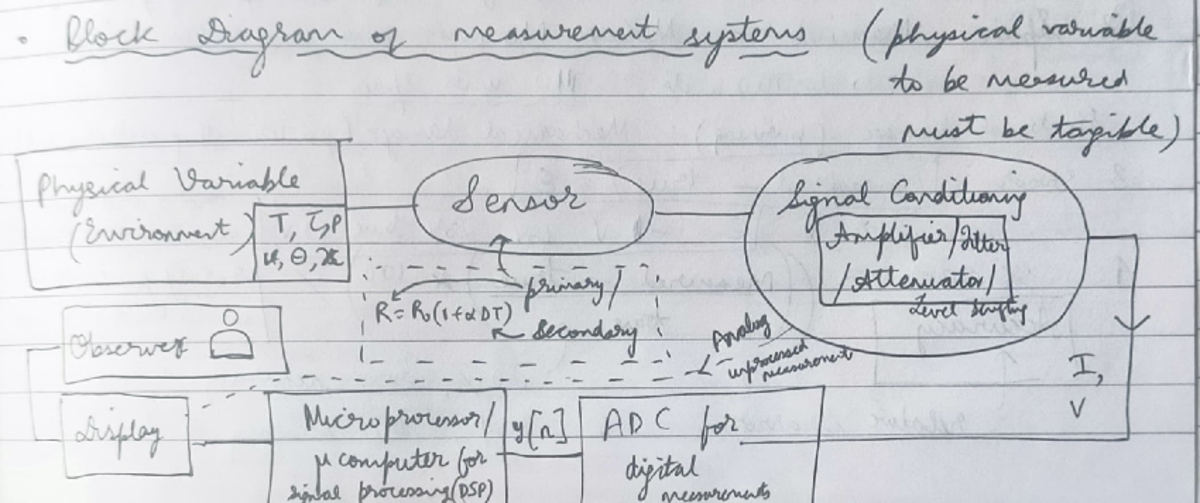 • Block Diagram of measurement systems (physical variable
to be measured
must be tangible)
Physical Variable
(Environment)
T, ζ, P
Sensor
Signal Conditioning
Amplifier/filter
/Attenuator/
Level shifting
primary/
secondary
R = R₀(1+αDT)
Analog
unprocessed
measurement
I,
V
Observer
Display
Microprocessor/
μcomputer for
signal processing (DSP)
y[n]
ADC for
digital
measurements